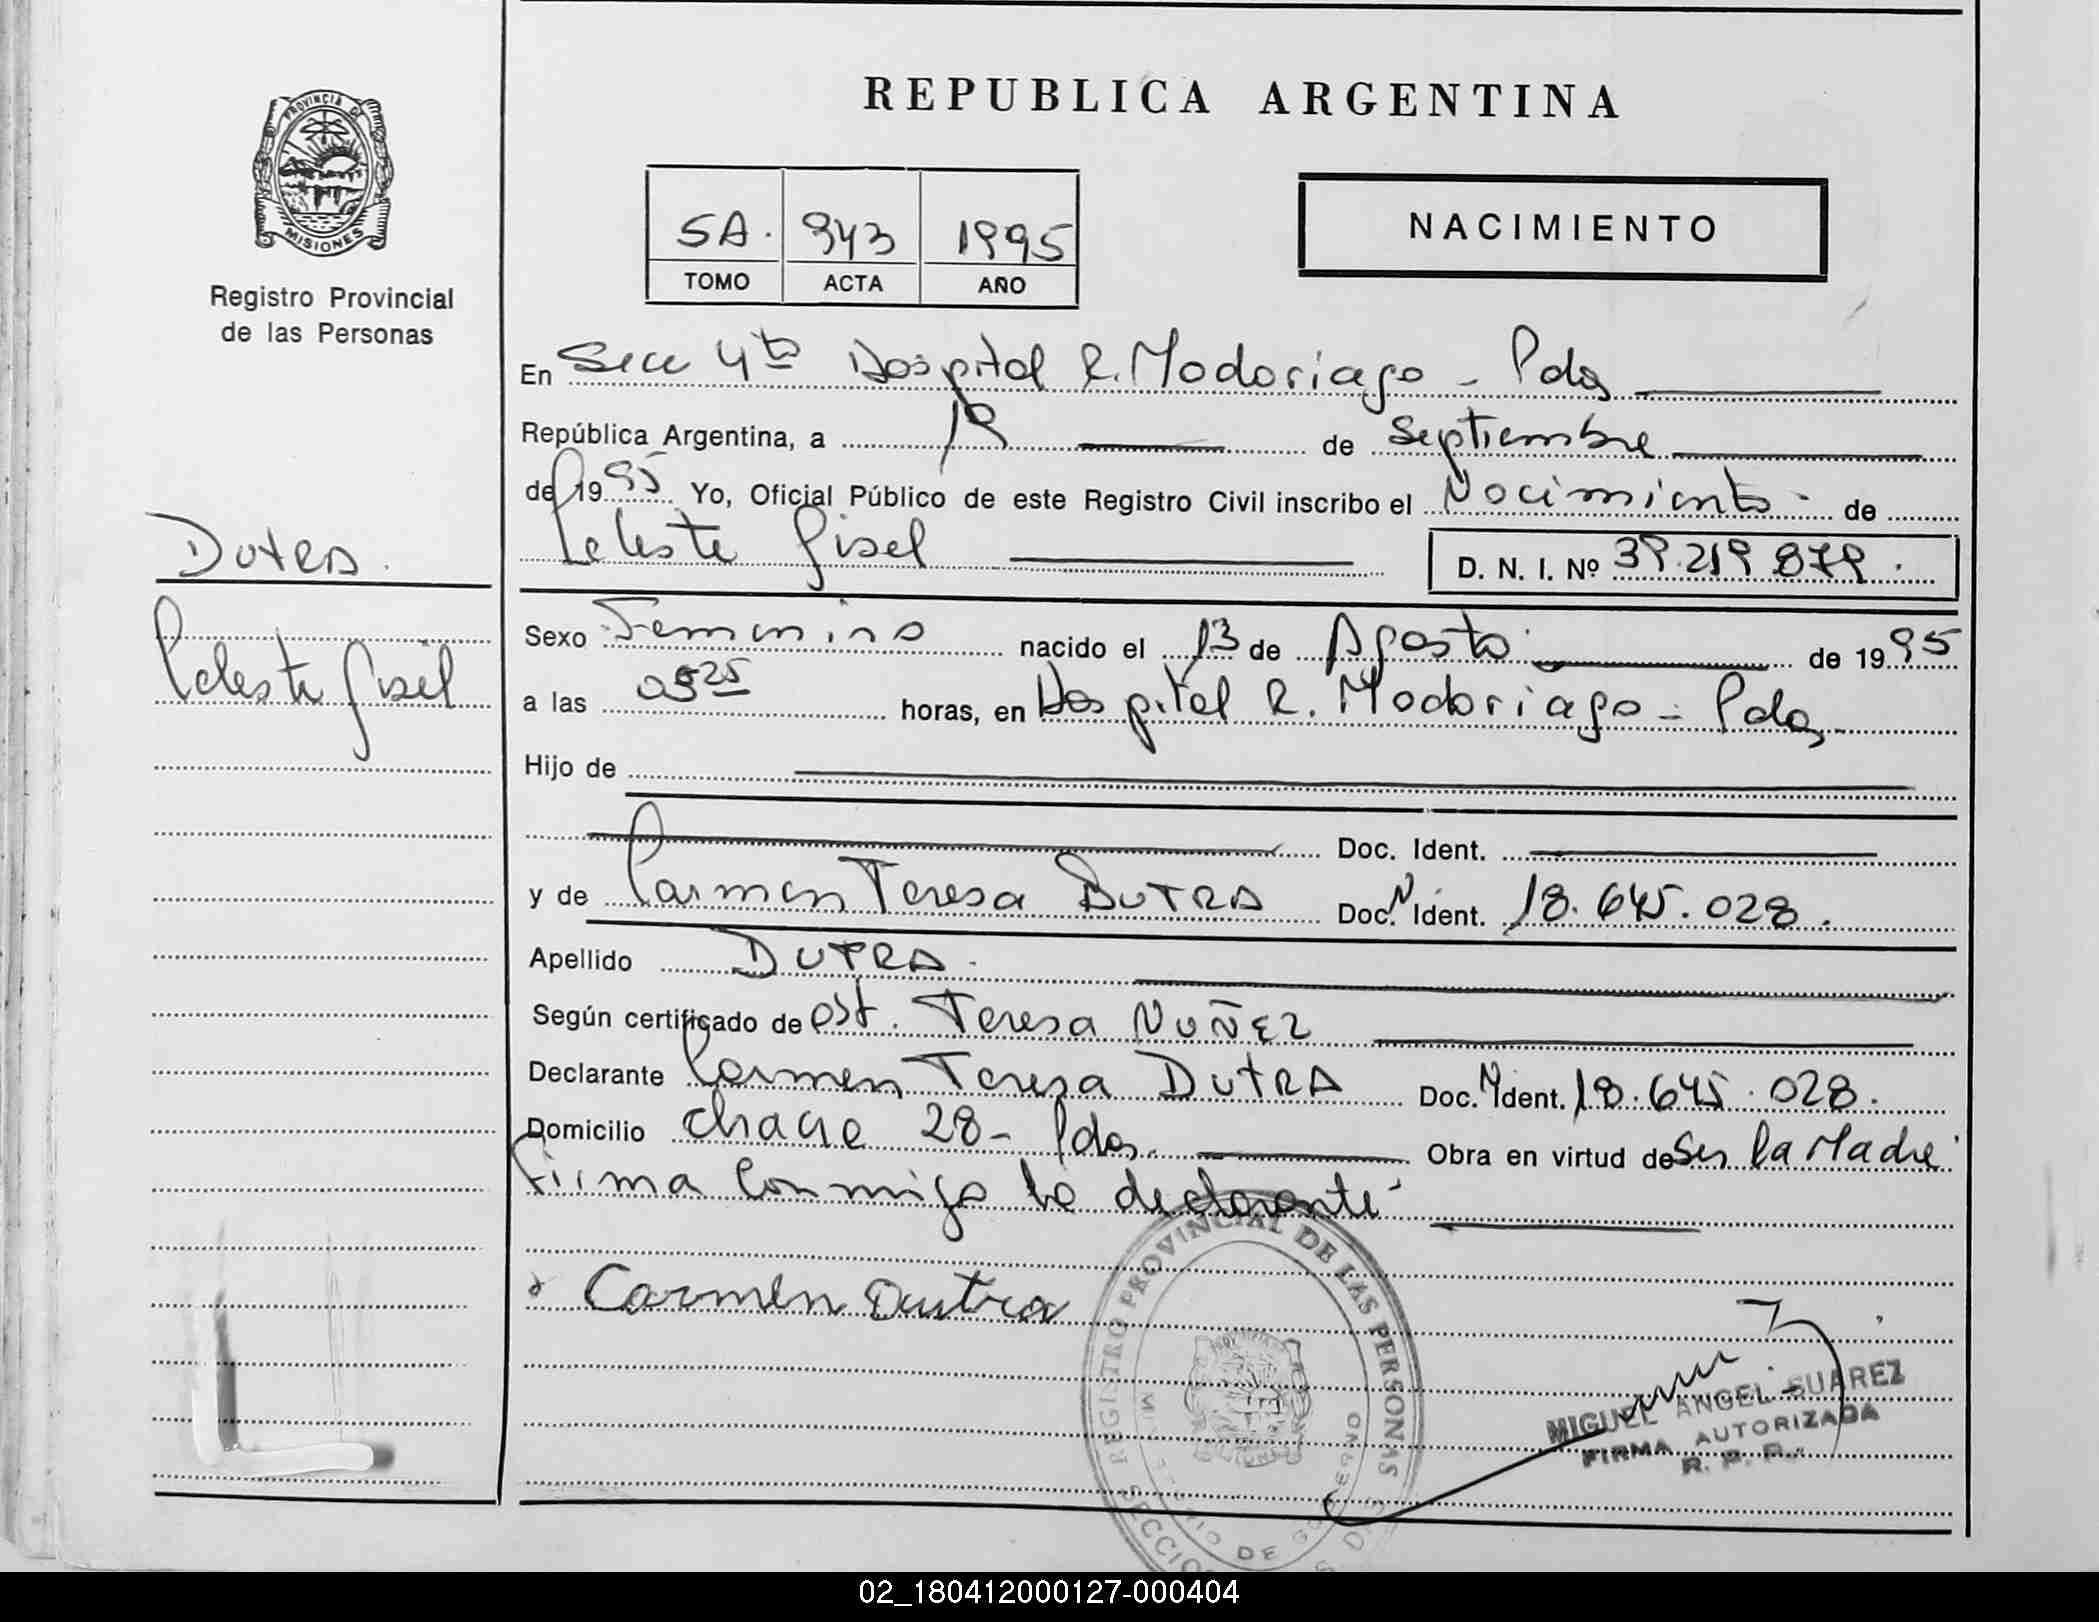 PROVINCIA DE
MISIONES
Registro Provincial
de las Personas
REPUBLICA ARGENTINA
5A. 943 1995
TOMO ACTA AÑO
NACIMIENTO
En Secc 4ta Hospital R. Madariaga - Pdas
República Argentina, a de Septiembre
de 1995 Yo, Oficial Público de este Registro Civil inscribo el Nacimiento de
Celeste Gisel
D. N. I. Nº 39.219.879.
DUTRA.
Celeste Gisel
Sexo Femenino nacido el 13 de Agosto de 1995
a las 0525 horas, en Hospital R. Madariaga - Pdas
Hijo de
Doc. Ident.
y de Carmen Teresa DUTRA Doc. N Ident. 18.645.028.
Apellido DUTRA.
Según certificado de obst. Teresa NUÑEZ
Declarante Carmen Teresa DUTRA Doc. N Ident. 18.645.028.
Domicilio 28- Pdas. Obra en virtud de Ser la Madre
Firma conmigo la declarante
Carmen Dutra
REGISTRO PROVINCIAL DE LAS PERSONAS
MINISTERIO DE GOBIERNO
MIGUEL ANGEL SUAREZ
FIRMA AUTORIZADA
R. P. P.
02_180412000127-000404